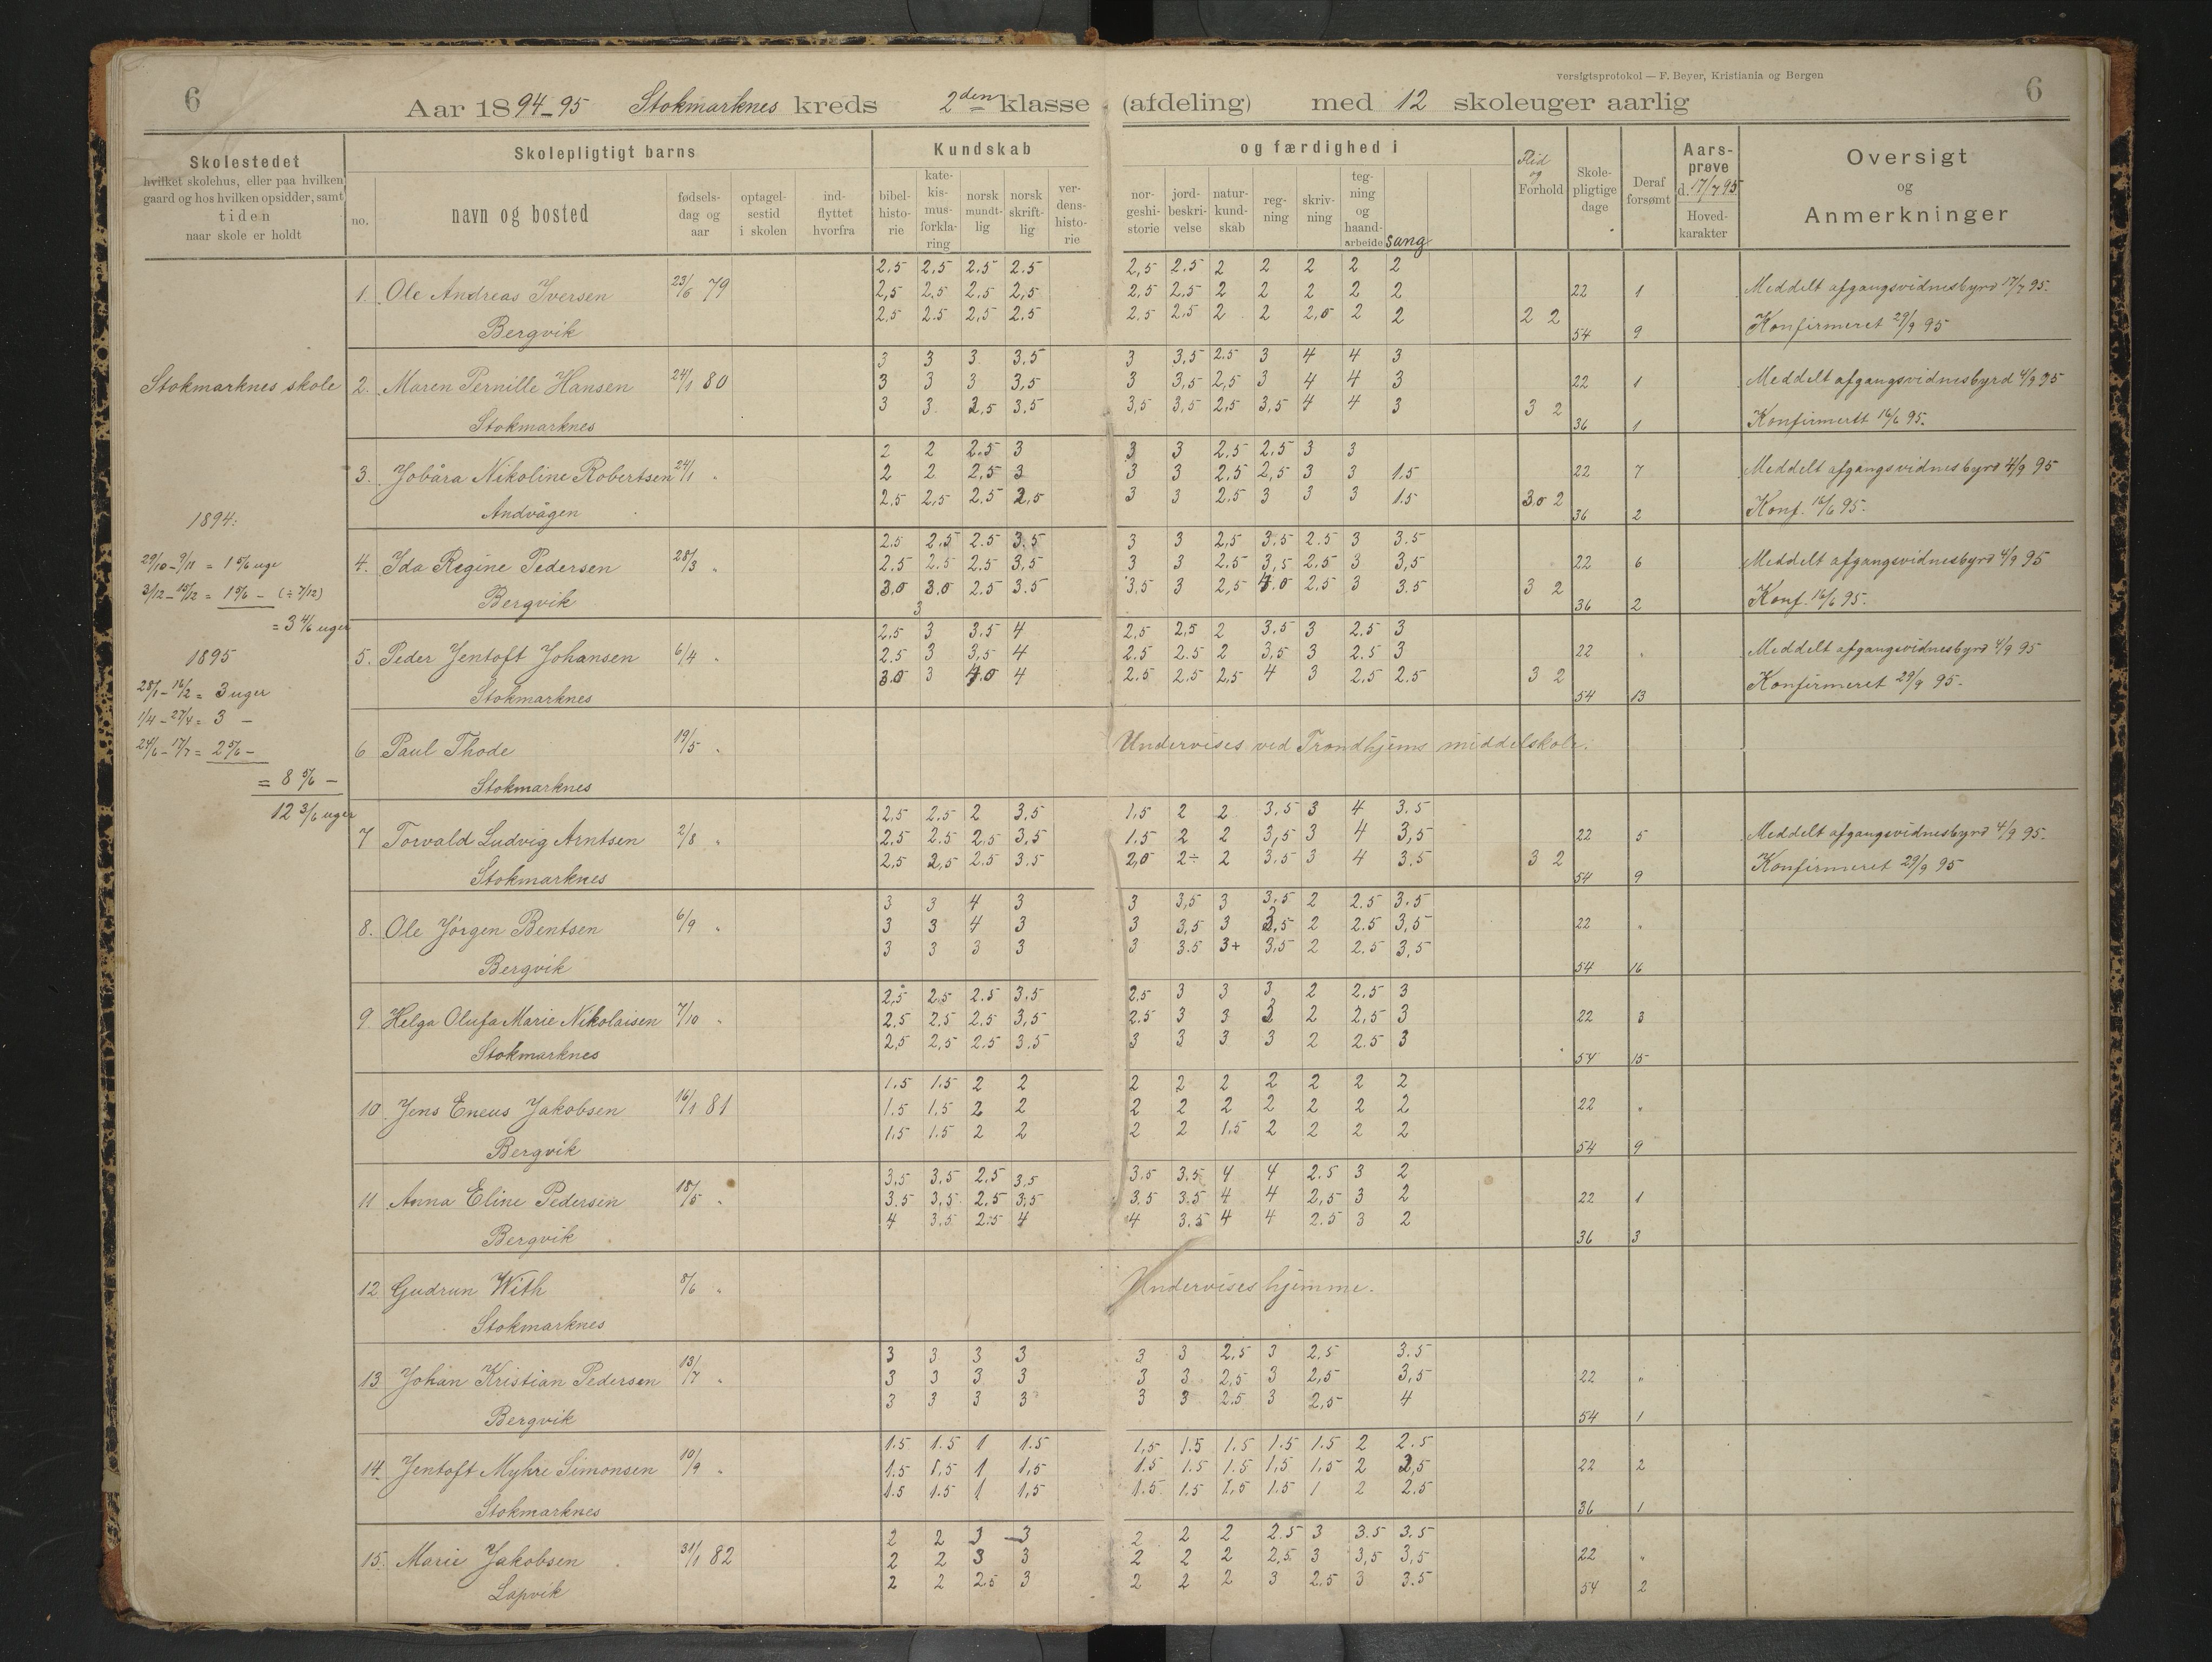 versigtsprotokol — F. Beyer, Kristiania og Bergen
6 Aar 1894-95 Stokmarknes kreds 2den klasse (afdeling) med 12 skoleuger aarlig 6
Skolestedet
hvilket skolehus, eller paa hvilken
gaard og hos hvilken opsidder, samt
tiden
naar skole er holdt
Skolepligtigt barns
no.
navn og bosted
fødsels-
dag og
aar
optagel-
sestid
i skolen
ind-
flyttet
hvorfra
Kundskab
bibel-
histo-
rie
kate-
kis-
mus-
forkla-
ring
norsk
mundt-
lig
norsk
skrift-
lig
ver-
dens-
histo-
rie
og færdighed i
nor-
geshi-
storie
jord-
beskri-
velse
natur-
kund-
skab
reg-
ning
skriv-
ning
teg-
ning
og
haand-
arbeide
sang
Flid
og
Forhold
Skole-
pligtige
dage
Deraf
forsømt
Aars-
prøve
d. 17/7 95
Hoved-
karakter
Oversigt
og
Anmerkninger
Stokmarknes skole
1894:
29/10-9/11 = 1 5/6 uge
3/12-15/12 = 1 5/6 - (÷ 7/12)
= 3 4/6 uger
1895
28/1-16/2 = 3 uger
1/4-27/4 = 3 -
24/6-17/7 = 2 5/6 -
= 8 5/6 -
12 3/6 uger
2.5 2,5 2.5 2.5 2,5 2.5 2 2 2 2 2
1. Ole Andreas Iversen 23/6 79 2,5 2,5 2,5 2,5 2,5 2,5 2 2 2 2 2 22 1 Meddelt afgangsvidnesbyrd 17/7 95.
Bergvik 2,5 2.5 2,5 2.5 2.5 2,5 2 2 2,0 2 2 2 2 54 9 Konfirmeret 29/9 95
3 3 3 3,5 3 3,5 2.5 3 4 4 3
2. Maren Pernille Hansen 24/1 80 3 3 3 3,5 3 3,5 2,5 3 4 4 3 22 1 Meddelt afgangsvidnesbyrd 4/9 95
Stokmarknes 3 3 2,5 3.5 3,5 3,5 2,5 3,5 4 4 3 3 2 36 1 Konfirmertt 16/6 95.
2 2 2.5 3 3 3 2.5 2,5 3 3
3. Jobåra Nikoline Robertsen 24/1 " 2 2 2,5 3 3 3 2.5 2,5 3 3 1.5 22 7 Meddelt afgangsvidnesbyrd 4/9 95
Andvågen 2.5 2,5 2.5 2,5 3 3 2.5 3 3 3 1.5 3.0 2 36 2 Konf. 16/6 95.
2.5 2.5 2.5 3.5 3 3 2,5 3.5 2.5 3 3.5
4. Ida Regine Pedersen 28/3 " 2.5 2.5 2.5 3,5 3 3 2.5 3,5 2,5 3 3,5 22 6 Meddelt afgangsvidnesbyrd 4/9 95
Bergvik 3,0 3,0 2.5 3.5 3.5 3 2,5 4.0 2.5 3 3.5 3 2 36 2 Konf. 16/6 95.
3
2,5 3 3.5 4 2,5 2,5 2 3.5 3 2.5 3
5. Peder Jentoft Johansen 6/4 " 2.5 3 3,5 4 2.5 2.5 2 3,5 3 2.5 3 22 " Meddelt afgangsvidnesbyrd 4/9 95
Stokmarknes 3.0 3 4.0 4 2.5 2,5 2,5 4 3 2,5 2.5 3 2 54 13 Konfirmeret 29/9 95.
6 Paul Thode 19/5 " Undervises ved Trondhjems middelskole.
Stokmarknes
2,5 2.5 2 3,5 1,5 2 2 3,5 3 4 3.5
7 Torvald Ludvig Arntsen 2/8 " 2.5 2.5 2,5 3,5 1.5 2 2 3,5 3 4 3,5 22 5 Meddelt afgangsvidnesbyrd 4/9 95.
Stokmarknes 2,5 2,5 2.5 3.5 2,0 2÷ 2 3.5 3 4 3.5 3 2 54 9 Konfirmeret 29/9 95
3 3 4 3 3 3,5 3 3,5 2 2.5 3.5
8. Ole Jörgen Bentsen 6/9 " 3 3 4 3 3 3,5 3 3,5 2 2.5 3,5 22 "
Bergvik 3 3 3 3 3 3.5 3+ 3,5 2 2.5 3,5 54 16
2,5 2.5 2.5 3.5 2.5 3 3 3 2 2.5 3
9. Helga Olufa Marie Nikolaisen 7/10 " 2.5 2.5 2,5 3,5 2.5 3 3 3 2 2,5 3 22 3
Stokmarknes 2,5 2,5 2.5 3.5 3 3 3 3 2 2.5 3 54 15
1.5 1.5 2 2 2 2 2 2 2 2 2
10 Jens Eneus Jakobsen 16/1 81 1.5 1.5 2 2 2 2 2 2 2 2 2 22 "
Bergvik 1.5 1.5 2 2 2 2 1.5 2 2 2 2 54 9
3,5 3,5 2.5 3.5 3.5 3.5 4 4 2.5 3 2
11 Anna Eline Pedersen 18/5 " 3.5 3,5 2.5 3,5 3.5 3.5 4 4 2,5 3 2 22 1
Bergvik 4 3.5 2.5 4 4 3.5 4 4 2.5 3 2 36 3
12 Gudrun With 8/6 " Undervises hjemme.
Stokmarknes
3 3 3 3 3 3 2,5 3 2,5 3.5
13 Johan Kristian Pedersen 13/7 " 3 3 3 3 3 3 2,5 3 2,5 3,5 22 "
Bergvik 3 3 3 3 3 3 2.5 3 2,5 4 54 1
1.5 1.5 1 1.5 1,5 1.5 1.5 1.5 1.5 2 2.5
14. Jentoft Myhre Simonsen 10/9 " 1.5 1,5 1 1,5 1.5 1.5 1.5 1,5 1,5 2 2,5 22 2
Stokmarknes 1.5 1.5 1 1,5 1.5 1.5 1,5 1.5 1 2 2.5 36 1
2 2 3 3 2 2 2 2.5 3 3.5 3.5
15. Marie Jakobsen 31/1 82 2 2 3 3 2 2 2 2,5 3 3,5 3,5 22 "
Lapvik 2 2 2.5 3 2 2 2 3 2.5 3 3.5 54 2